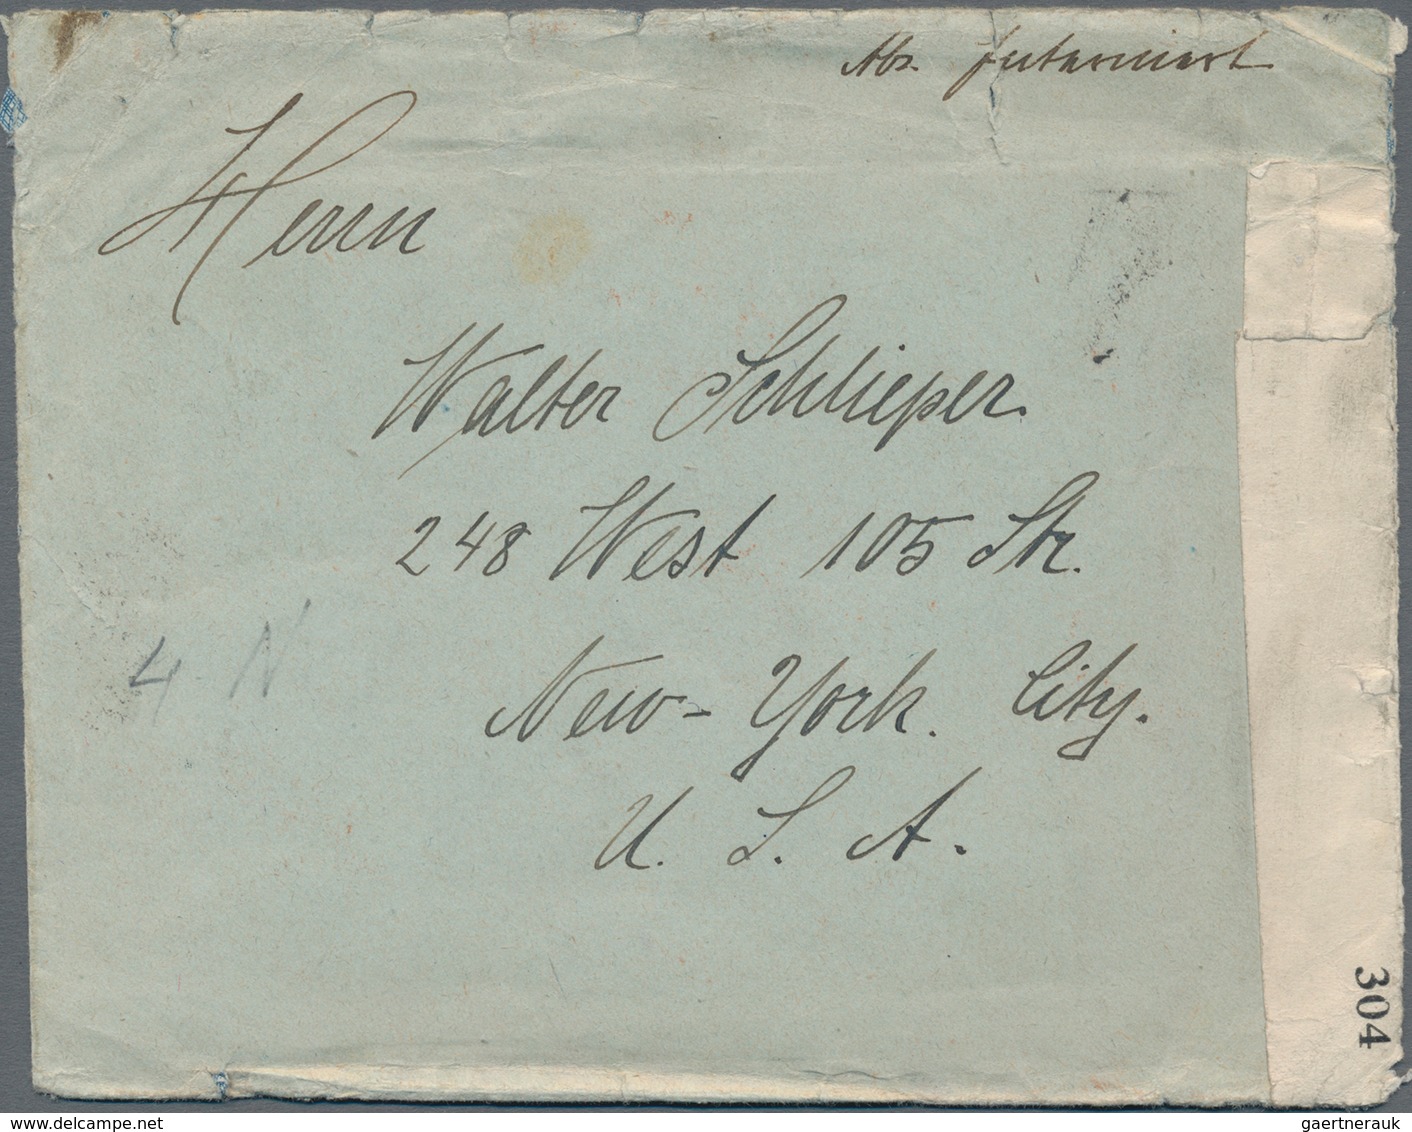 Abs. Interniert
Herrn
Walter Schlieper.
248 West 105 Str.
4 N
New-York. City.
U. S. A.
304
gaertnerauk
www.delcampe.net